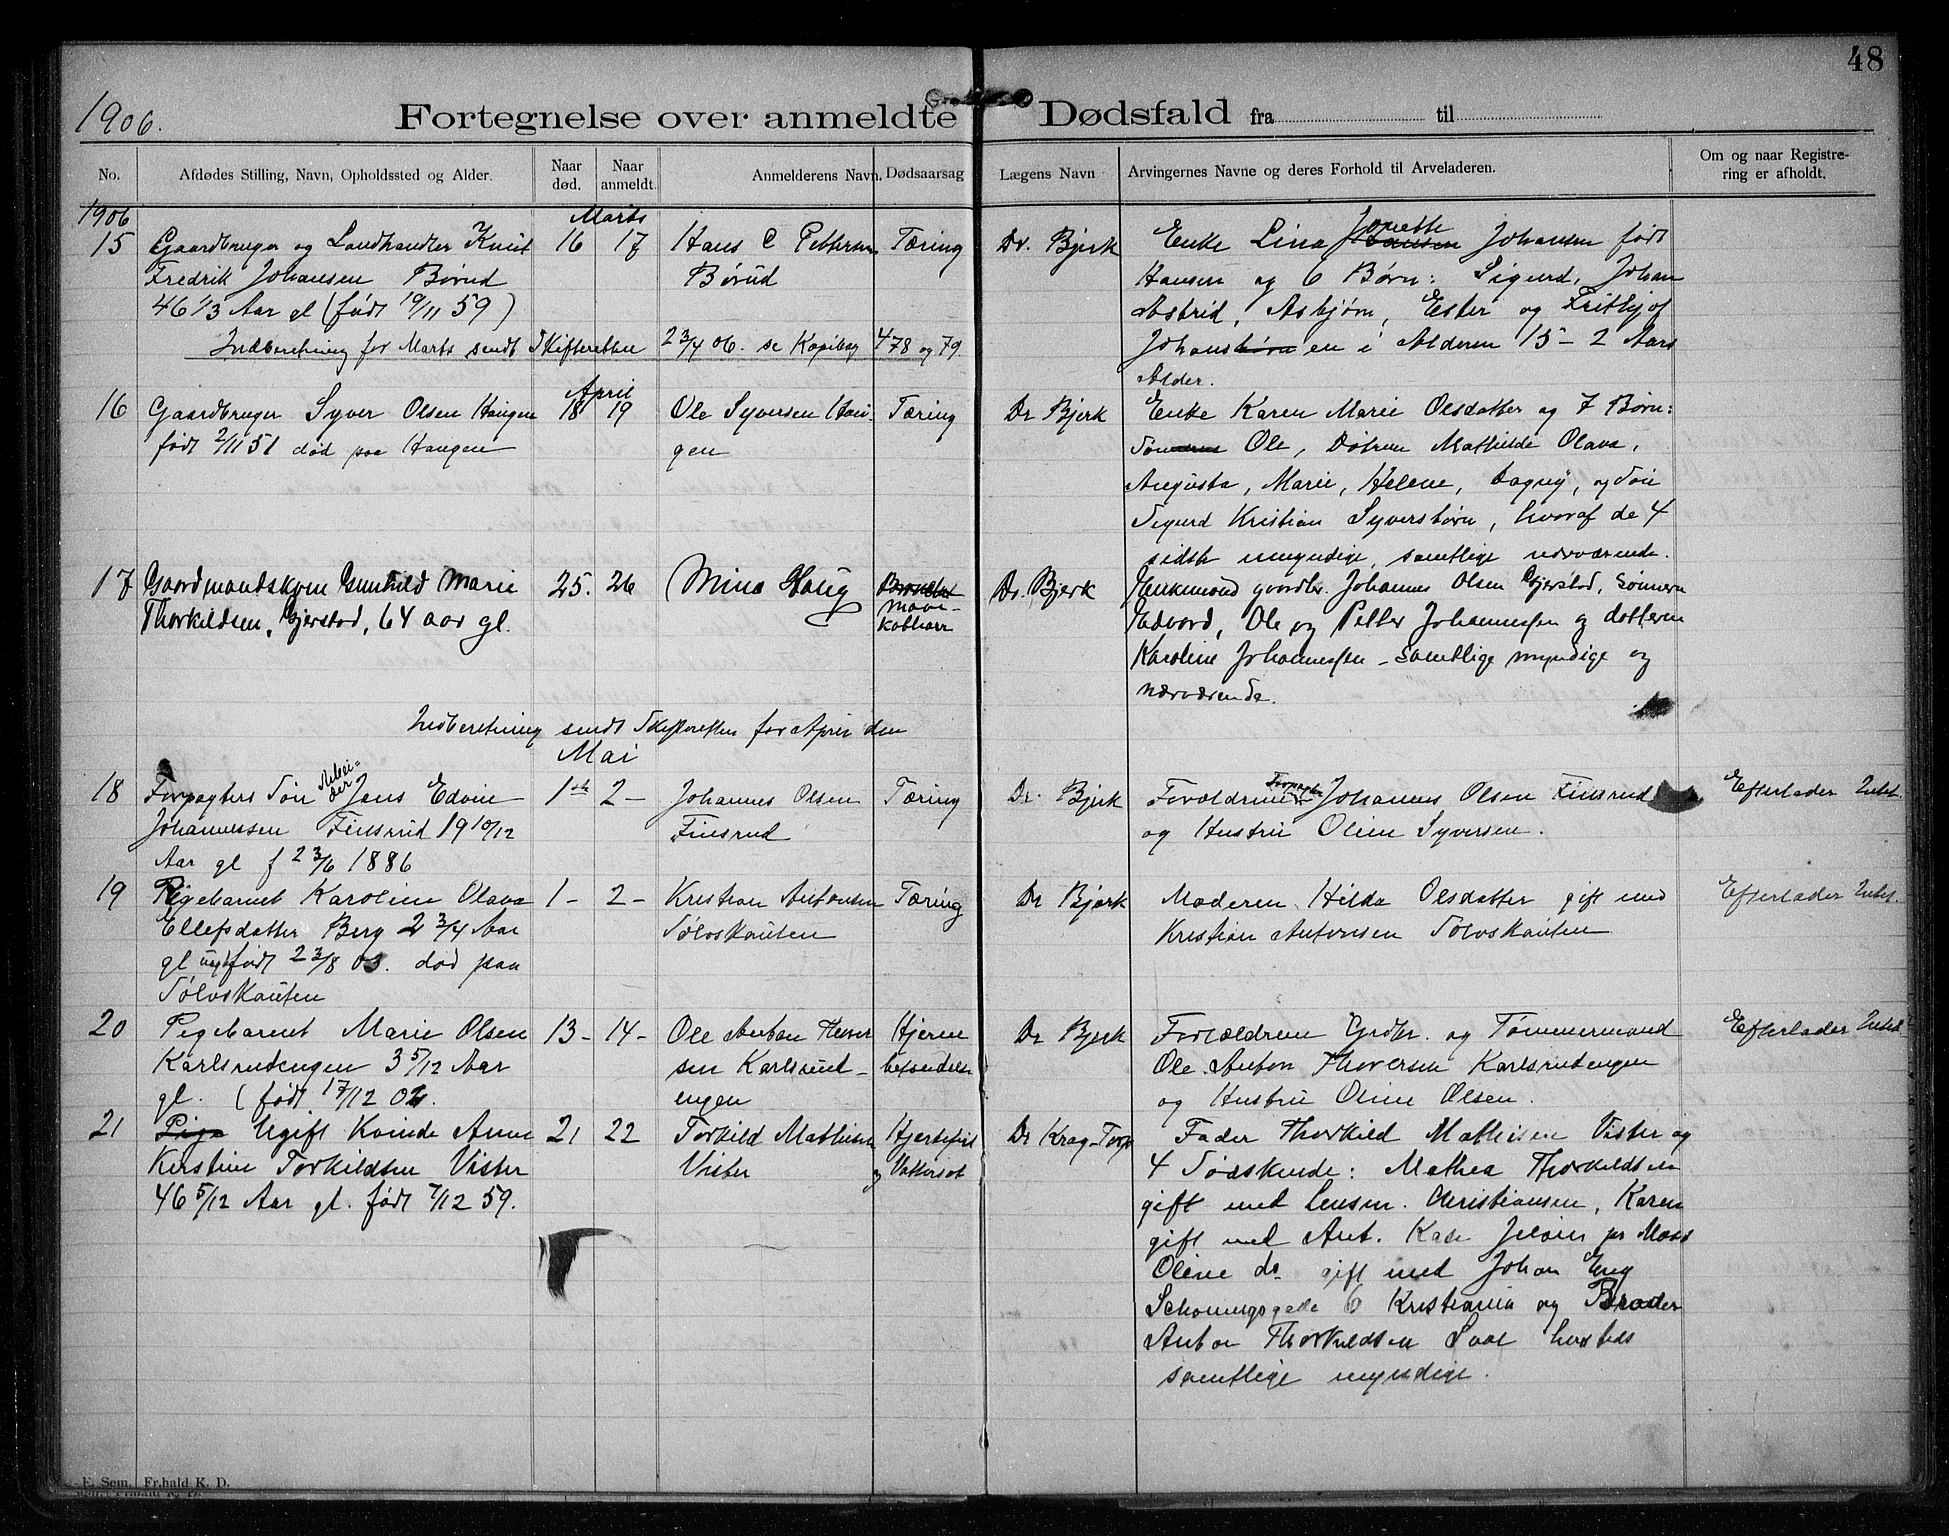 48
1906.
Fortegnelse over anmeldte Dødsfald fra til
No.
Afdødes Stilling, Navn, Opholdssted og Alder.
Naar død.
Naar anmeldt.
Anmelderens Navn.
Dødsaarsag
Lægens Navn
Arvingernes Navne og deres Forhold til Arveladeren.
Om og naar Registre-
ring er afholdt.
1906
Marts
15 Gaardbruger og Landhandler Knut 16 17 Hans C Pettersen Tæring Dr. Bjerk Enke Lina Jonette Johansen født
Fredrik Johansen Børud Børud Hansen og 6 Børn: Sigurd, Johan
46 1/3 Aar gl (født 19/11 59) Astrid, Asbjørn, Ester og Frithjof
Indberetning for Marts sendt Skifteretten 23/4 06. se Kopibog 478 og 79. Johansen i Alderen 15-2 Aars
Alder.
April
16 Gaardbruger Syver Olsen Haugen 18 19 Ole Syversen Hau- Tæring Dr Bjerk Enke Karen Marie Olsdatter og 7 Børn:
født 2/11 51 død paa Haugen gen Ole, Døtrene Mathilde Olava,
Augusta, Marie, Helene, Dagny, og Søn
Sigurd Kristian Syversbørn, hvoraf de 4
sidste umyndige, samtlige nærværende.
17 Gaardmandskone Gunhild Marie 25. 26 Mina Haug Dr. Bjerk Enkemand gaardbr. Johannes Olsen Gjerstad, sønnerne
Thorkildsen, Gjerstad, 64 aar gl. mave-
katharr Edvard, Ole og Petter Johannessen og datteren
Karoline Johannessen - samtlige myndige og
nærværende.
Indberetning sendt Skifteretten for April den
Mai
18 Forpagters Søn Arbei-
der Jens Edvin 1ste 2- Johannes Olsen Tæring Dr. Bjerk Forældrene Forpagter Johannes Olsen Finsrud Efterlader Intet.
Johannessen Finsrud 19 10/12 Finsrud og Hustru Oline Syversen.
Aar gl f 23/6 1886
19 Pigebarnet Karoline Olava 1- 2- Kristian Antonsen Tæring Dr Bjerk Moderen Hilda Olsdatter gift med Efterlader Intet.
Ellefsdatter Berg 2 3/4 Aar Sølvskauten Kristian Antonsen Sølvskauten
gl født 23/8 03. død paa
Sølvskauten
20 Pigebarnet Marie Olsen 13- 14- Ole Anton Thover- Hjerne Dr Bjerk Forældrene Grdbr. og Tømmermand Efterlader Intet
Karlsrudengen 3 5/12 Aar sen Karlsrud- betændelse Ole Anton Thoversen Karlsrudengen
gl. (født 17/12 02. engen og Hustru Oline Olsen.
21 Pige Ugift Kvinde Anne 21 22 Torkild Mathisen Hjertefeil Dr Krag-Torp Fader Thorkild Mathisen Vister og
Kirstine Torkildsen Vister Vister og Vattersot 4 Sødskende: Mathea Thorkildsen
46 5/12 Aar gl. født 7/12 59. gift med Lensm. Christiansen, Karen
gift med Ant. Jeløen pr Moss
Oline do gift med Johan Eng
Schøningsgade 6 Kristiania og Broder
Anton Thorkildsen
samtlige myndige.
F. Sem. Fr.hald K. D.